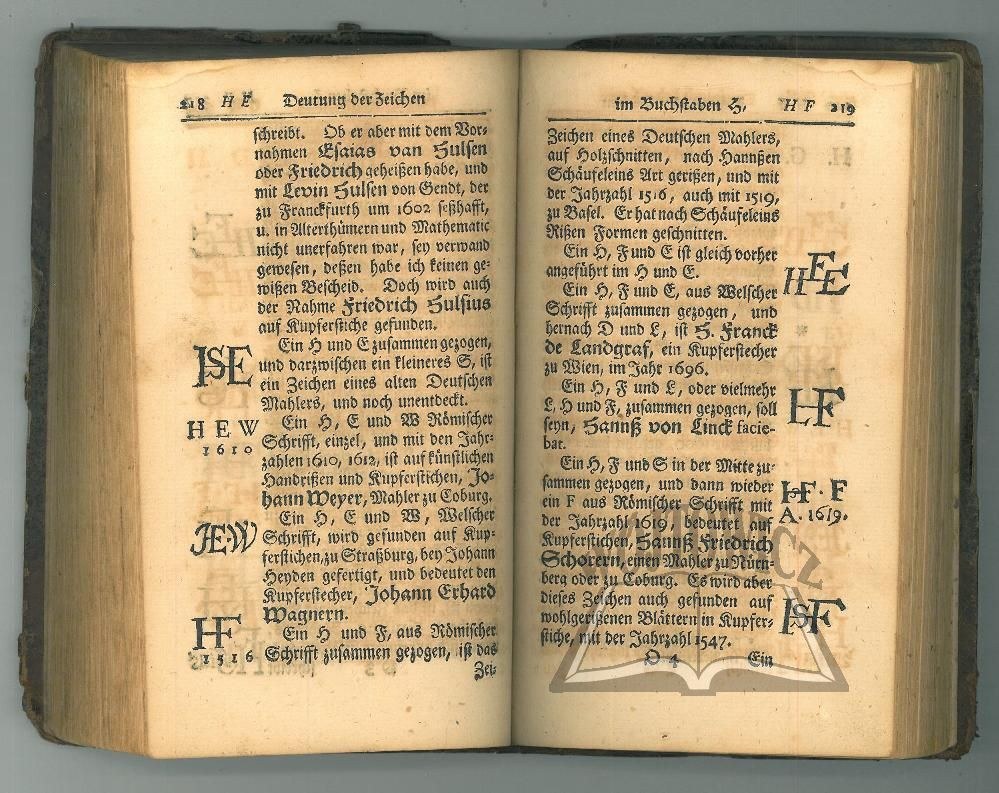 218 H E Deutung der Zeichen
schreibt. Ob er aber mit dem Vor-
nahmen Esaias van Hulsen
oder Friedrich geheißen habe, und
mit Levin Hulsen von Gendt, der
zu Franckfurth um 1602 seßhafft,
u. in Alterthümern und Mathematic
nicht unerfahren war, sey verwand
gewesen, deßen habe ich keinen ge-
wißen Bescheid. Doch wird auch
der Nahme Friedrich Hulsius
auf Kupferstiche gefunden.
Ein H und E zusammen gezogen,
HSE
und darzwischen ein kleineres S, ist
ein Zeichen eines alten Deutschen
Mahlers, und noch unentdeckt.
H E W
Ein H, E und W Römischer
1610
Schrifft, einzel, und mit den Jahr-
zahlen 1610, 1612, ist auf künstlichen
Handrißen und Kupferstichen, Jo-
hann Weyer, Mahler zu Coburg.
Ein H, E und W, Welscher
HE:W
Schrifft, wird gefunden auf Kup-
ferstichen, zu Straßburg, bey Johann
Heyden gefertigt, und bedeutet den
Kupferstecher, Johann Erhard
Wagnern.
HF
Ein H und F, aus Römischer
1516
Schrifft zusammen gezogen, ist das
Zei-
im Buchstaben H, H F 219
Zeichen eines Deutschen Mahlers,
auf Holzschnitten, nach Hannßen
Schäufeleins Art gerißen, und mit
der Jahrzahl 1516, auch mit 1519,
zu Basel. Er hat nach Schäufeleins
Rißen Formen geschnitten.
Ein H, F und E ist gleich vorher
angeführt im H und E.
HFE
Ein H, F und E, aus Welscher
Schrifft zusammen gezogen, und
hernach D und L, ist H. Franck
de Landgraf, ein Kupferstecher
zu Wien, im Jahr 1696.
Ein H, F und L, oder vielmehr
LHF
L, H und F, zusammen gezogen, soll
seyn, Hannß von Linck facie-
bat.
Ein H, F und S in der Mitte zu-
sammen gezogen, und dann wieder
HF · F
ein F aus Römischer Schrifft mit
A. 1619.
der Jahrzahl 1619, bedeutet auf
Kupferstichen, Hannß Friedrich
Schorern, einen Mahler zu Nürn-
berg oder zu Coburg. Es wird aber
dieses Zeichen auch gefunden auf
HSF
wohlgerißenen Blättern in Kupfer-
stiche, mit der Jahrzahl 1547.
O 4 Ein